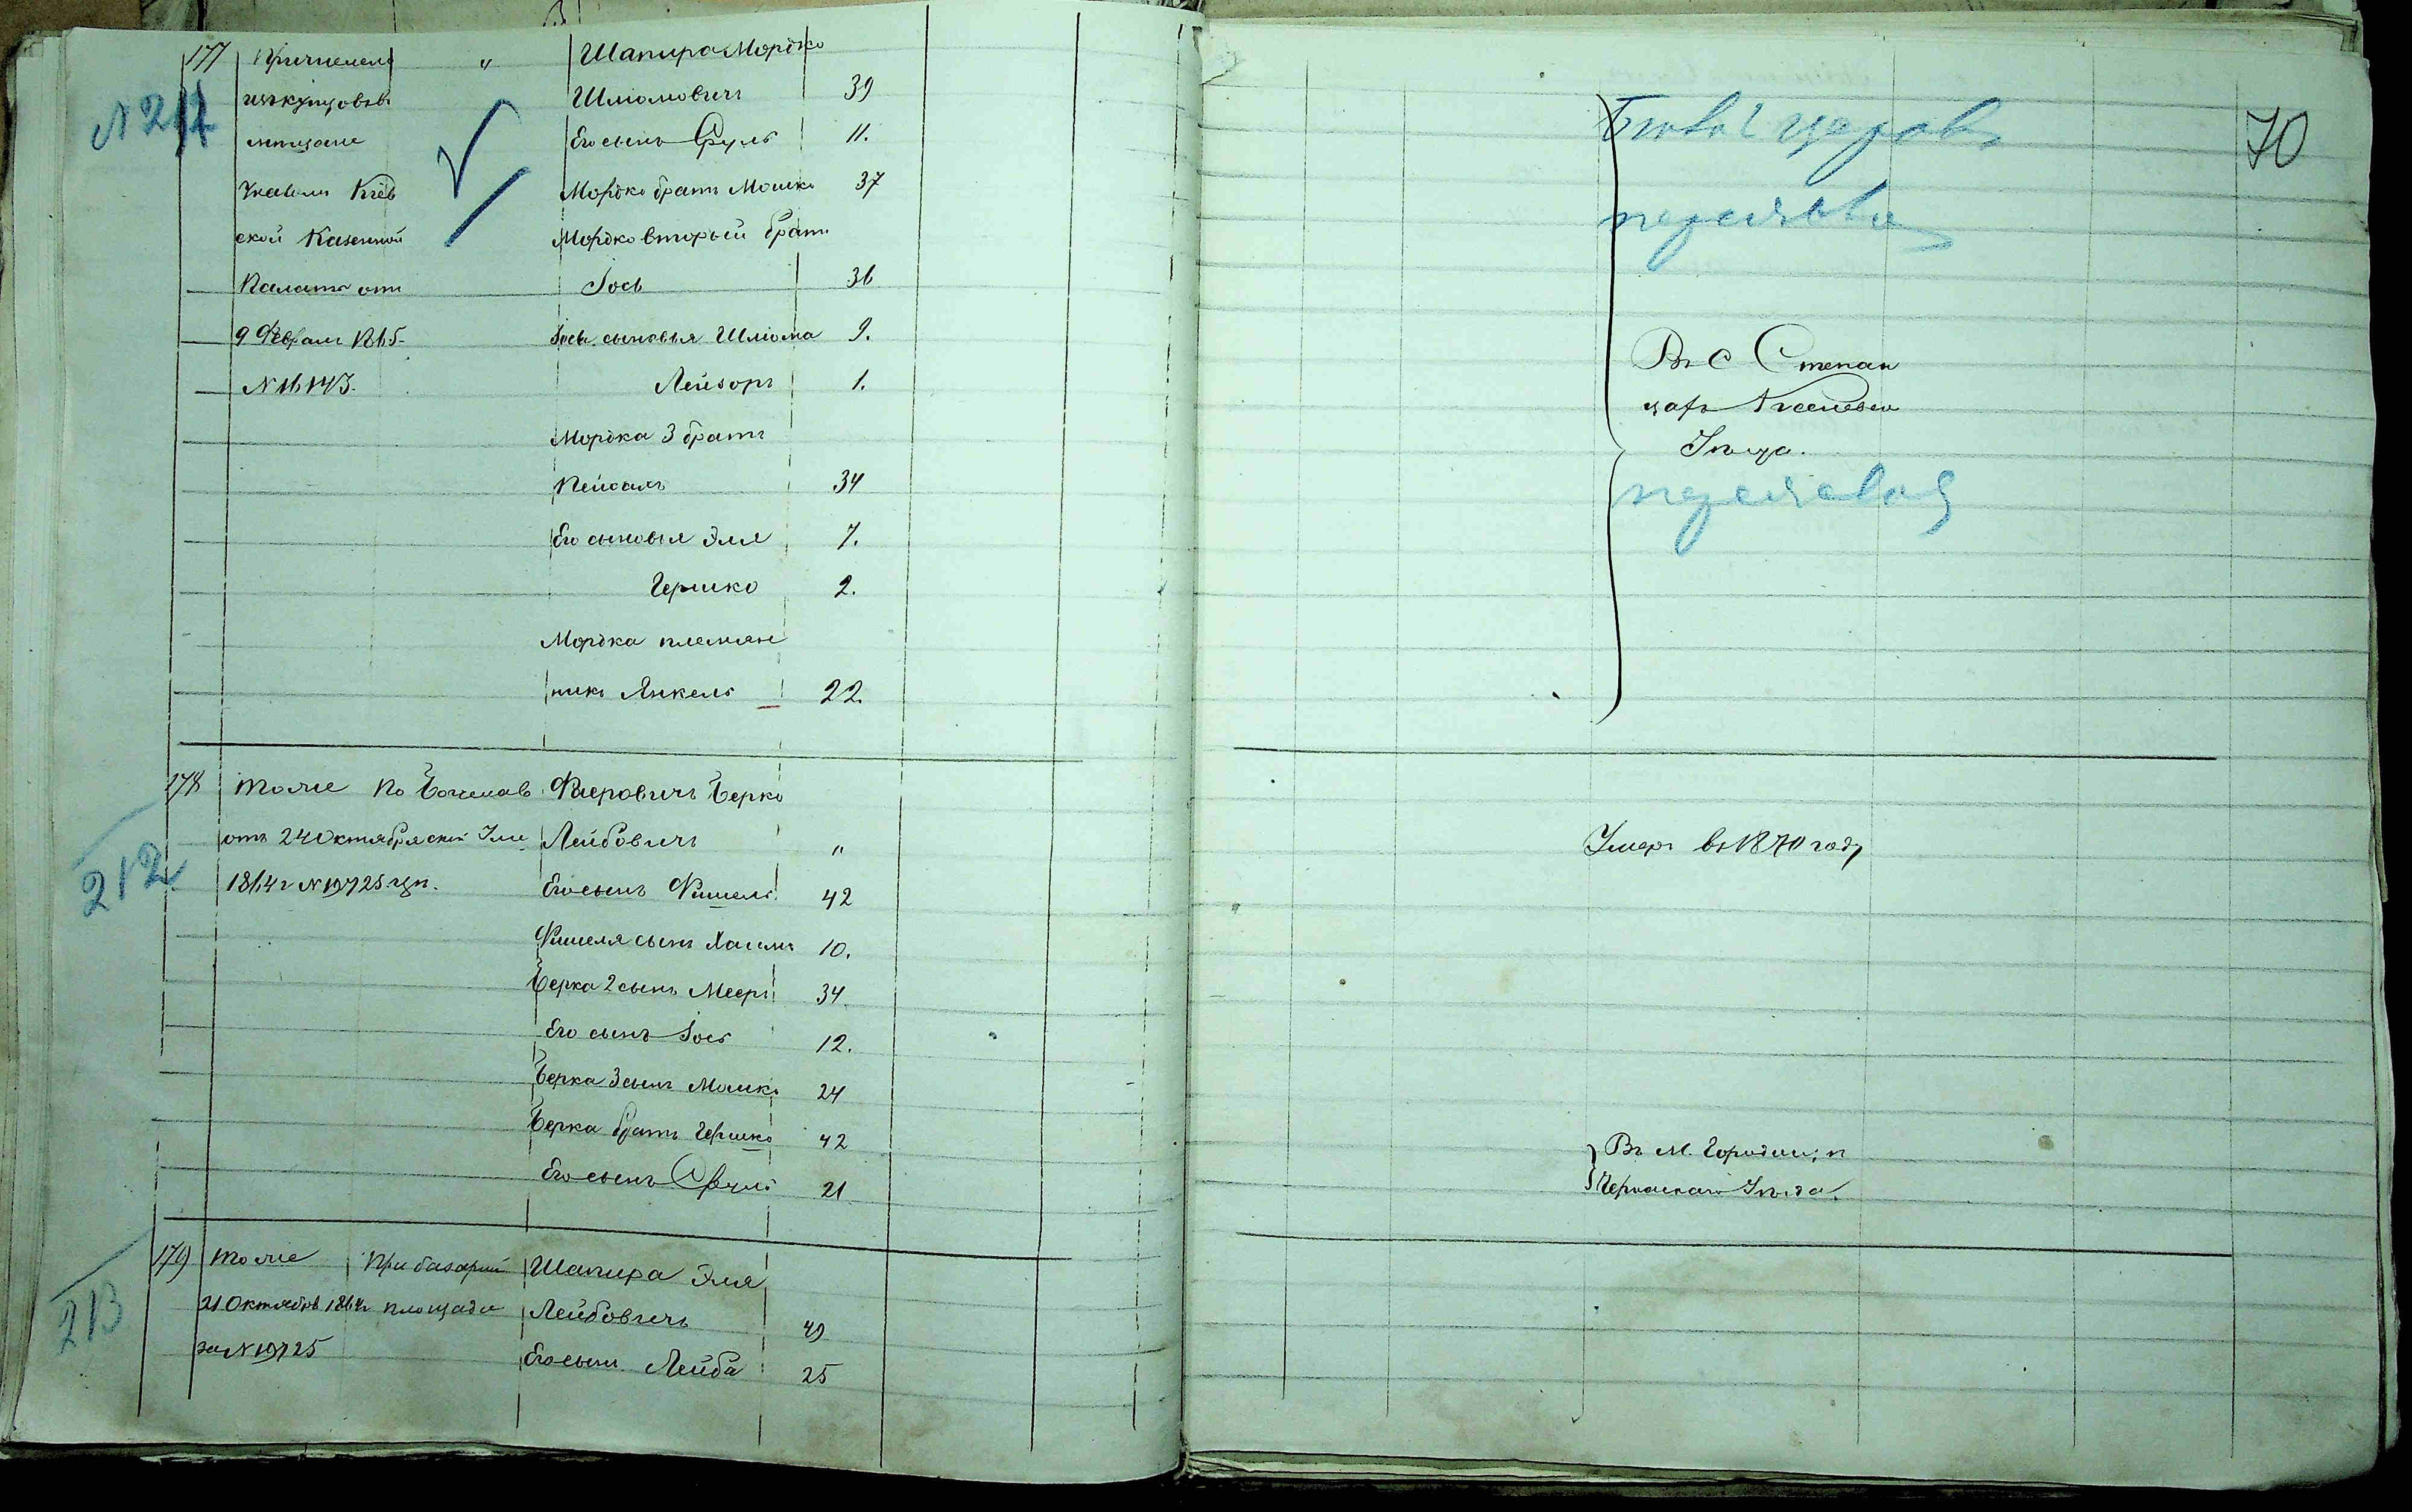 177 Причислен " Шапиро Мордко
изъ купцовъ въ Шлиомовичъ 39
№ 212
мещане Его сынъ Сруль 11.
Указомъ Кіев Мордко братъ Мошко 37
ской Казенной Мордко вторый братъ
Палаты отъ Іось 36
9 Февраля 1865 Іося сыновья Шлиома 9.
№ 16143. Лейзоръ 1.
Мордка 3 братъ
Пейсахъ 34
Его сыновья Эля 7.
Гершко 2.
Мордка племян
никъ Янкель 22.
178 тоже По Богуслав Фиеровичъ Берко
отъ 24 Октября ской Ули Лейбовичъ "
212
1864 г № 19725 цп. Его сынъ Фишель 42
Фишеля сынъ Хаимъ 10.
Берка 2 сынъ Мееръ 34
Его сынъ Іось 12.
Берка 3 сынъ Мошко 24
Берка братъ Гершко 42
Его сынъ Сруль 21
179 тоже При базарной Шапира Эля
21 Октября 1864 г площади Лейбовичъ 49
213
за № 19725 Его сынъ Лейба 25
70
Въ С Степан
Уѣзда.
Умеръ въ 1870 году
Въ М. Городищи
Черкаскаго Уѣзда.